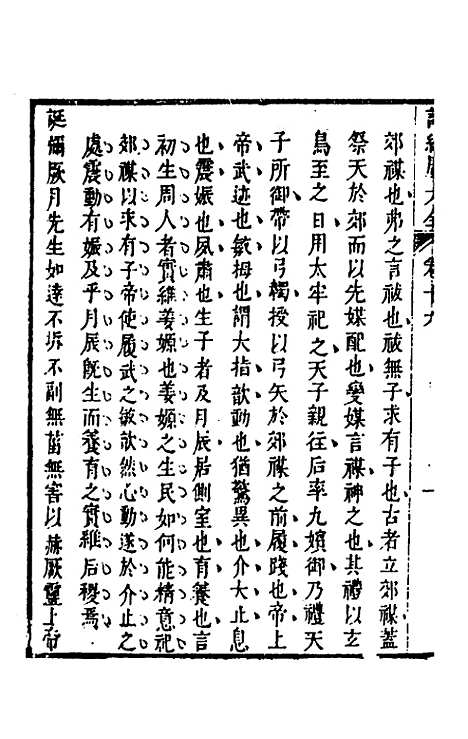 詩經備大全 卷十九 一
郊禖也弗之言祓也祓無子求有子也古者立郊禖蓋
祭天於郊而以先媒配也變媒言禖神之也其禮以玄
鳥至之日用太牢祀之天子親往后率九嬪御乃禮天
子所御帶以弓韣授以弓矢於郊禖之前履踐也帝上
帝武迹也敏拇也謂大指歆動也猶驚異也介大止息
也震娠也夙肅也生子者及月辰居側室也育養也言
初生周人者實維姜嫄也姜嫄之生民如何能精意祀
郊禖以求有子帝使履武之敏歆然心動遂於介止之
處震動有娠及乎月辰既生而養育之實維后稷焉
誕彌厥月先生如達不坼不副無菑無害以赫厥靈上帝